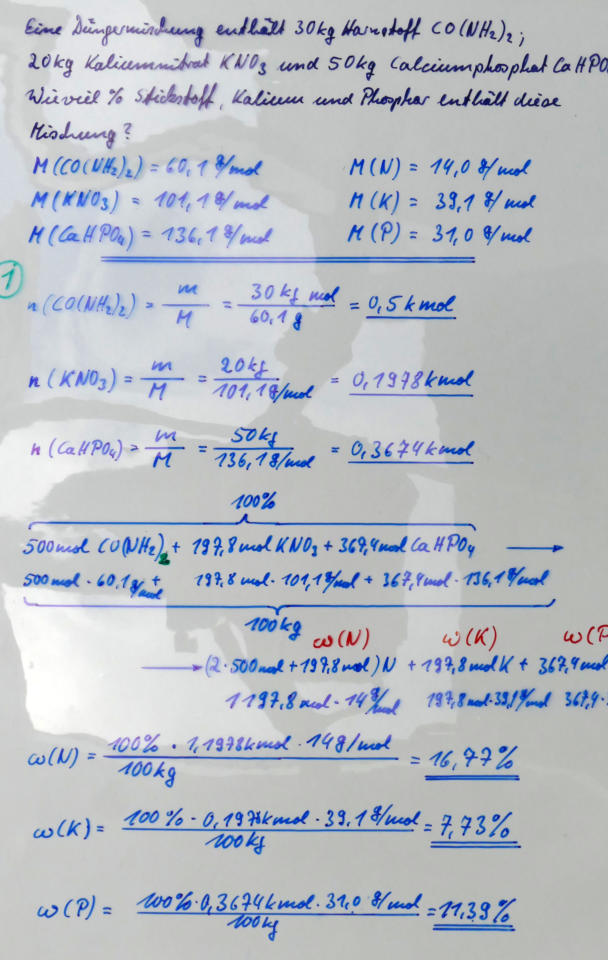 Eine Düngermischung enthält 30kg Harnstoff CO(NH₂)₂,
20kg Kaliumnitrat KNO₃ und 50kg Calciumphosphat CaHPO
Wieviel % Stickstoff, Kalium und Phosphor enthält diese
Mischung?
M(CO(NH₂)₂) = 60,1 g/mol M(N) = 14,0 g/mol
M(KNO₃) = 101,1 g/mol M(K) = 39,1 g/mol
M(CaHPO₄) = 136,1 g/mol M(P) = 31,0 g/mol
1
n(CO(NH₂)₂) = m/M = 30 kg mol/60,1 g = 0,5 kmol
n(KNO₃) = m/M = 20kg/101,1 g/mol = 0,1978 kmol
n(CaHPO₄) = m/M = 50kg/136,1 g/mol = 0,3674 kmol
100%
500mol CO(NH₂)₂ + 197,8mol KNO₃ + 367,4mol CaHPO₄ →
500mol · 60,1 g/mol + 197,8mol · 101,1 g/mol + 367,4mol · 136,1 g/mol
100kg
ω(N) ω(K) ω(P
→ (2·500mol + 197,8mol)N + 197,8mol K + 367,4mol
1197,8mol · 14 g/mol 197,8mol·39,1 g/mol 367,4·
ω(N) = 100% · 1,1978kmol · 14g/mol / 100kg = 16,77%
ω(K) = 100% · 0,1978kmol · 39,1 g/mol / 100kg = 7,73%
ω(P) = 100% · 0,3674kmol · 31,0 g/mol / 100kg = 11,39%